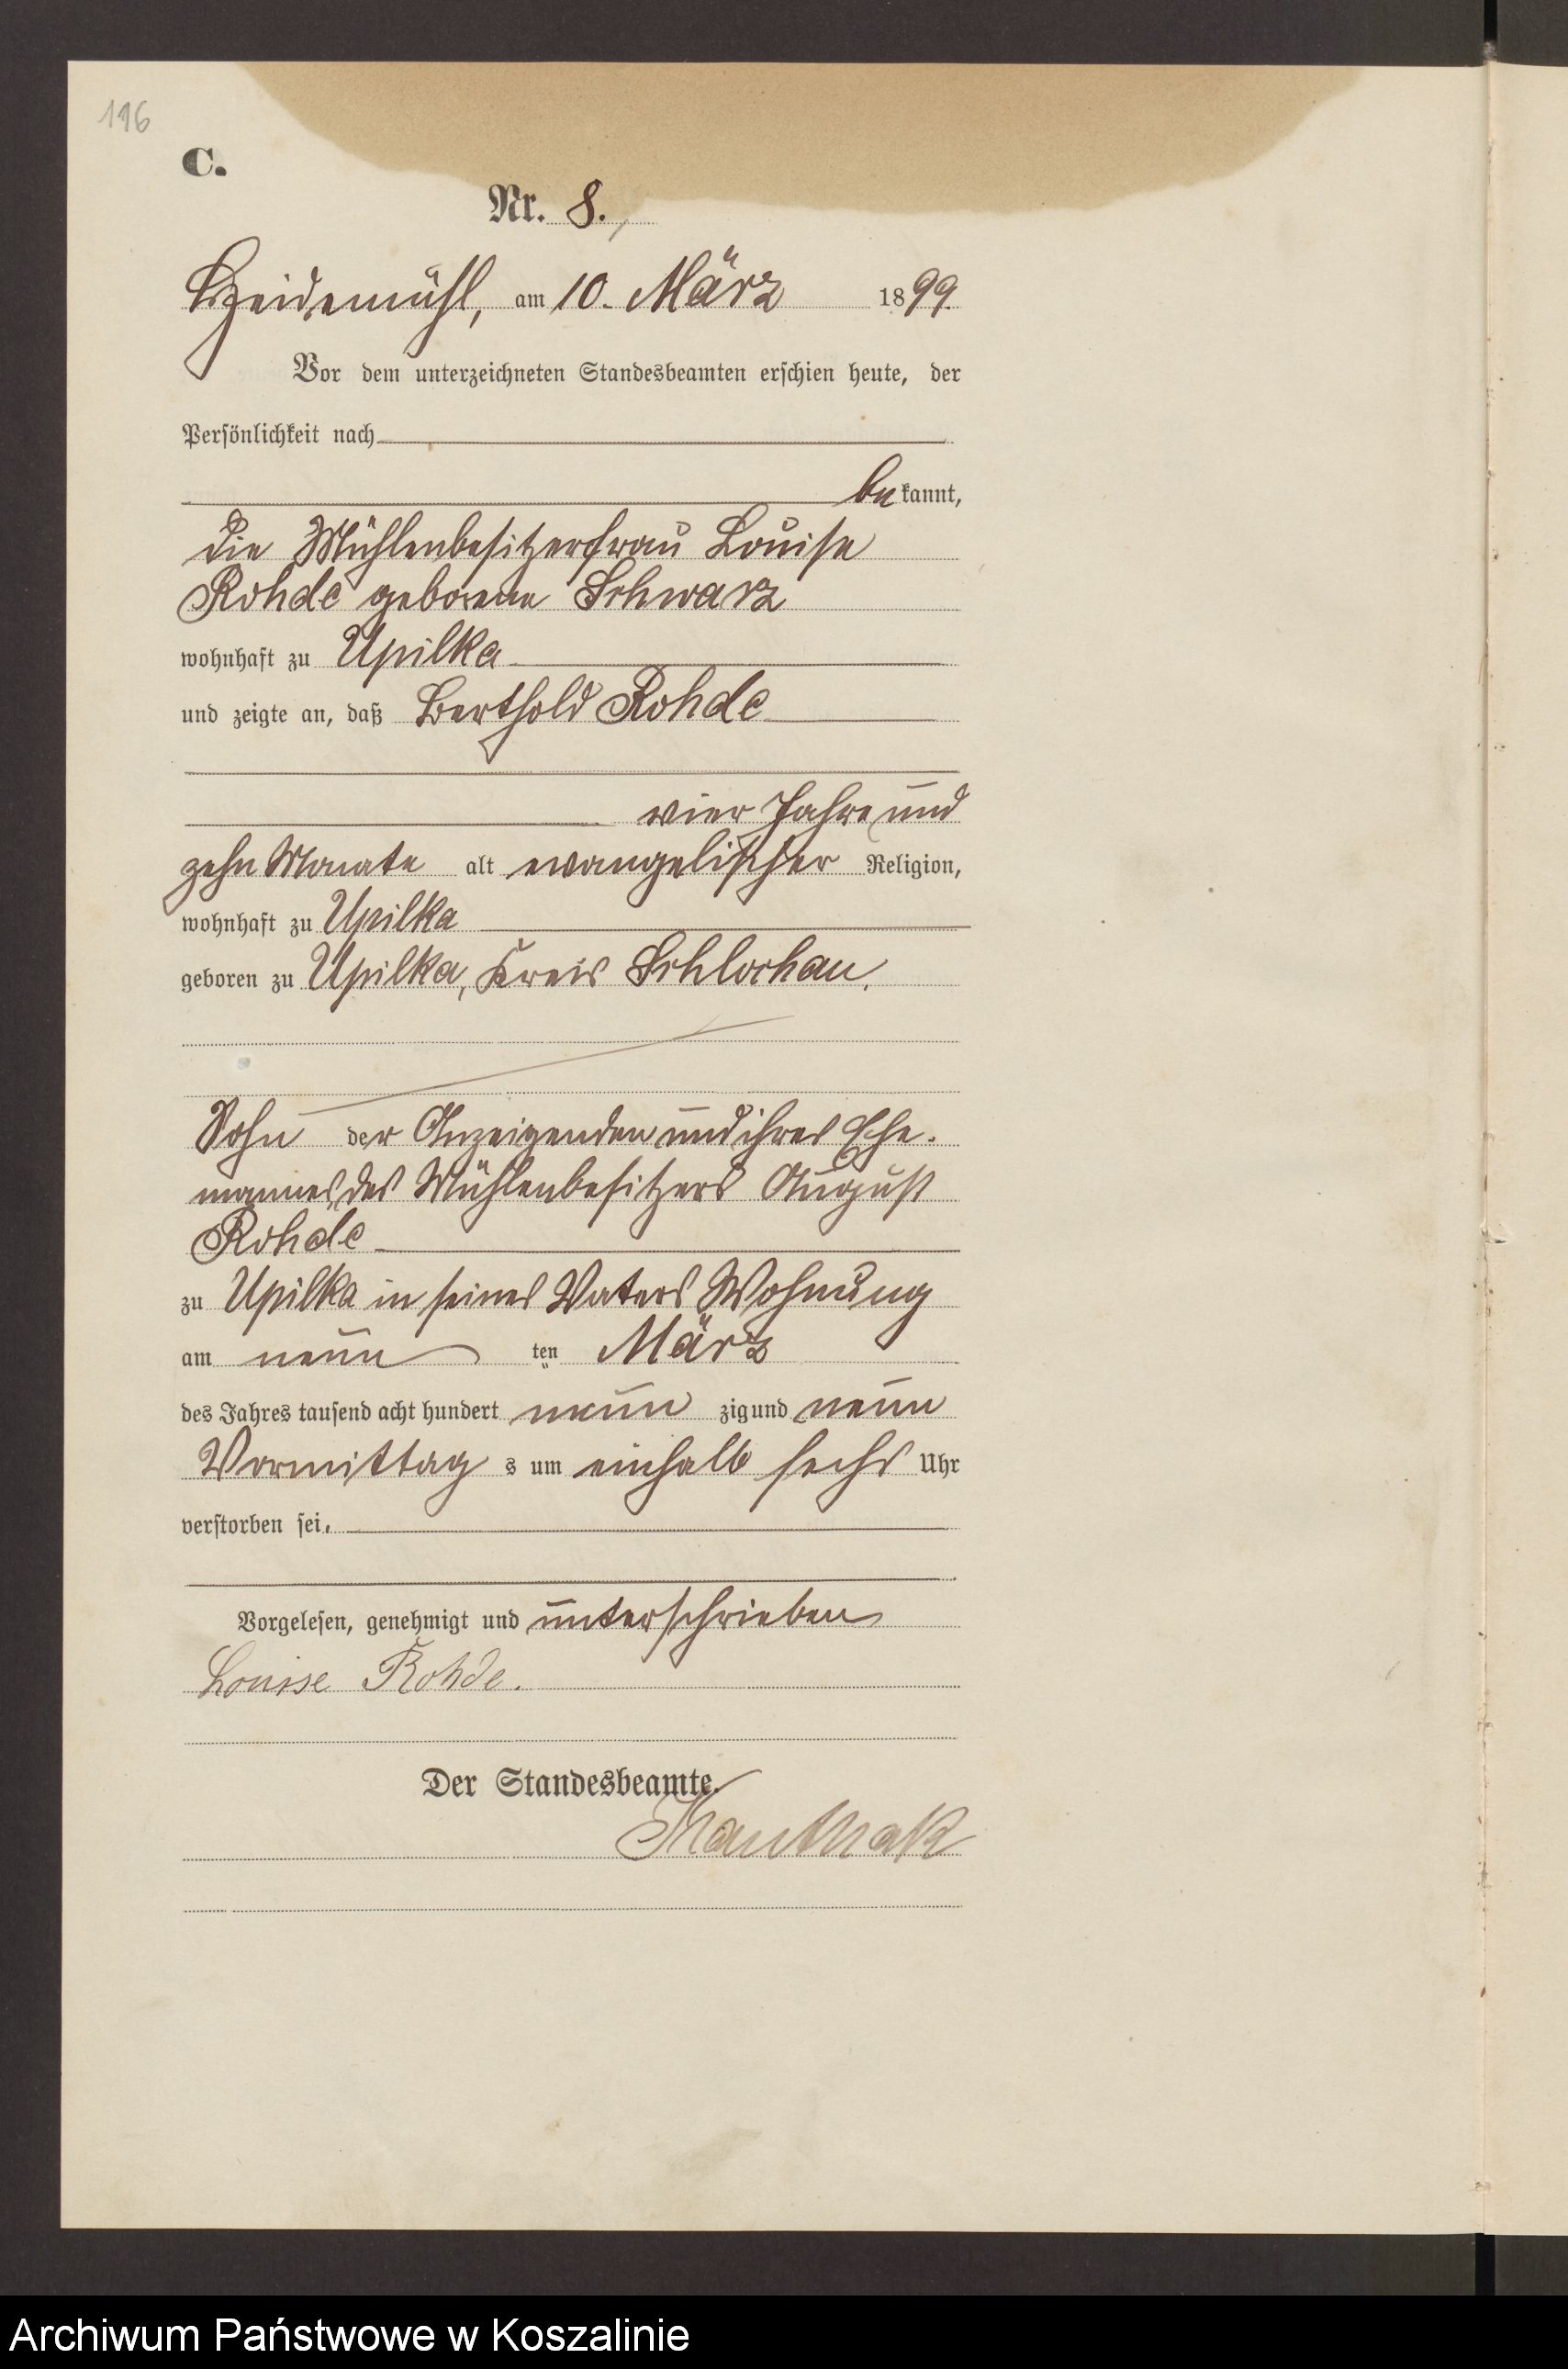 196
C.
Nr. 8.
Heidemühl, am 10. März 1899.
Vor dem unterzeichneten Standesbeamten erschien heute, der
Persönlichkeit nach
bekannt,
die Mühlenbesitzerfrau Louise
Rohde geborene Schwarz
wohnhaft zu Upilka
und zeigte an, daß Berthold Rohde
vier Jahre und
zehn Monate alt evangelischer Religion,
wohnhaft zu Upilka
geboren zu Upilka, Kreis Schlochau.
Sohn der Anzeigenden und ihres Ehe-
mannes, des Mühlenbesitzers August
Rohde
zu Upilka in seines Vaters Wohnung
am neun ten März
des Jahres tausend acht hundert neun zig und neun
Vormittag s um einhalb sechs Uhr
verstorben sei.
Vorgelesen, genehmigt und unterschrieben
Louise Rohde.
Der Standesbeamte.
Archiwum Państwowe w Koszalinie